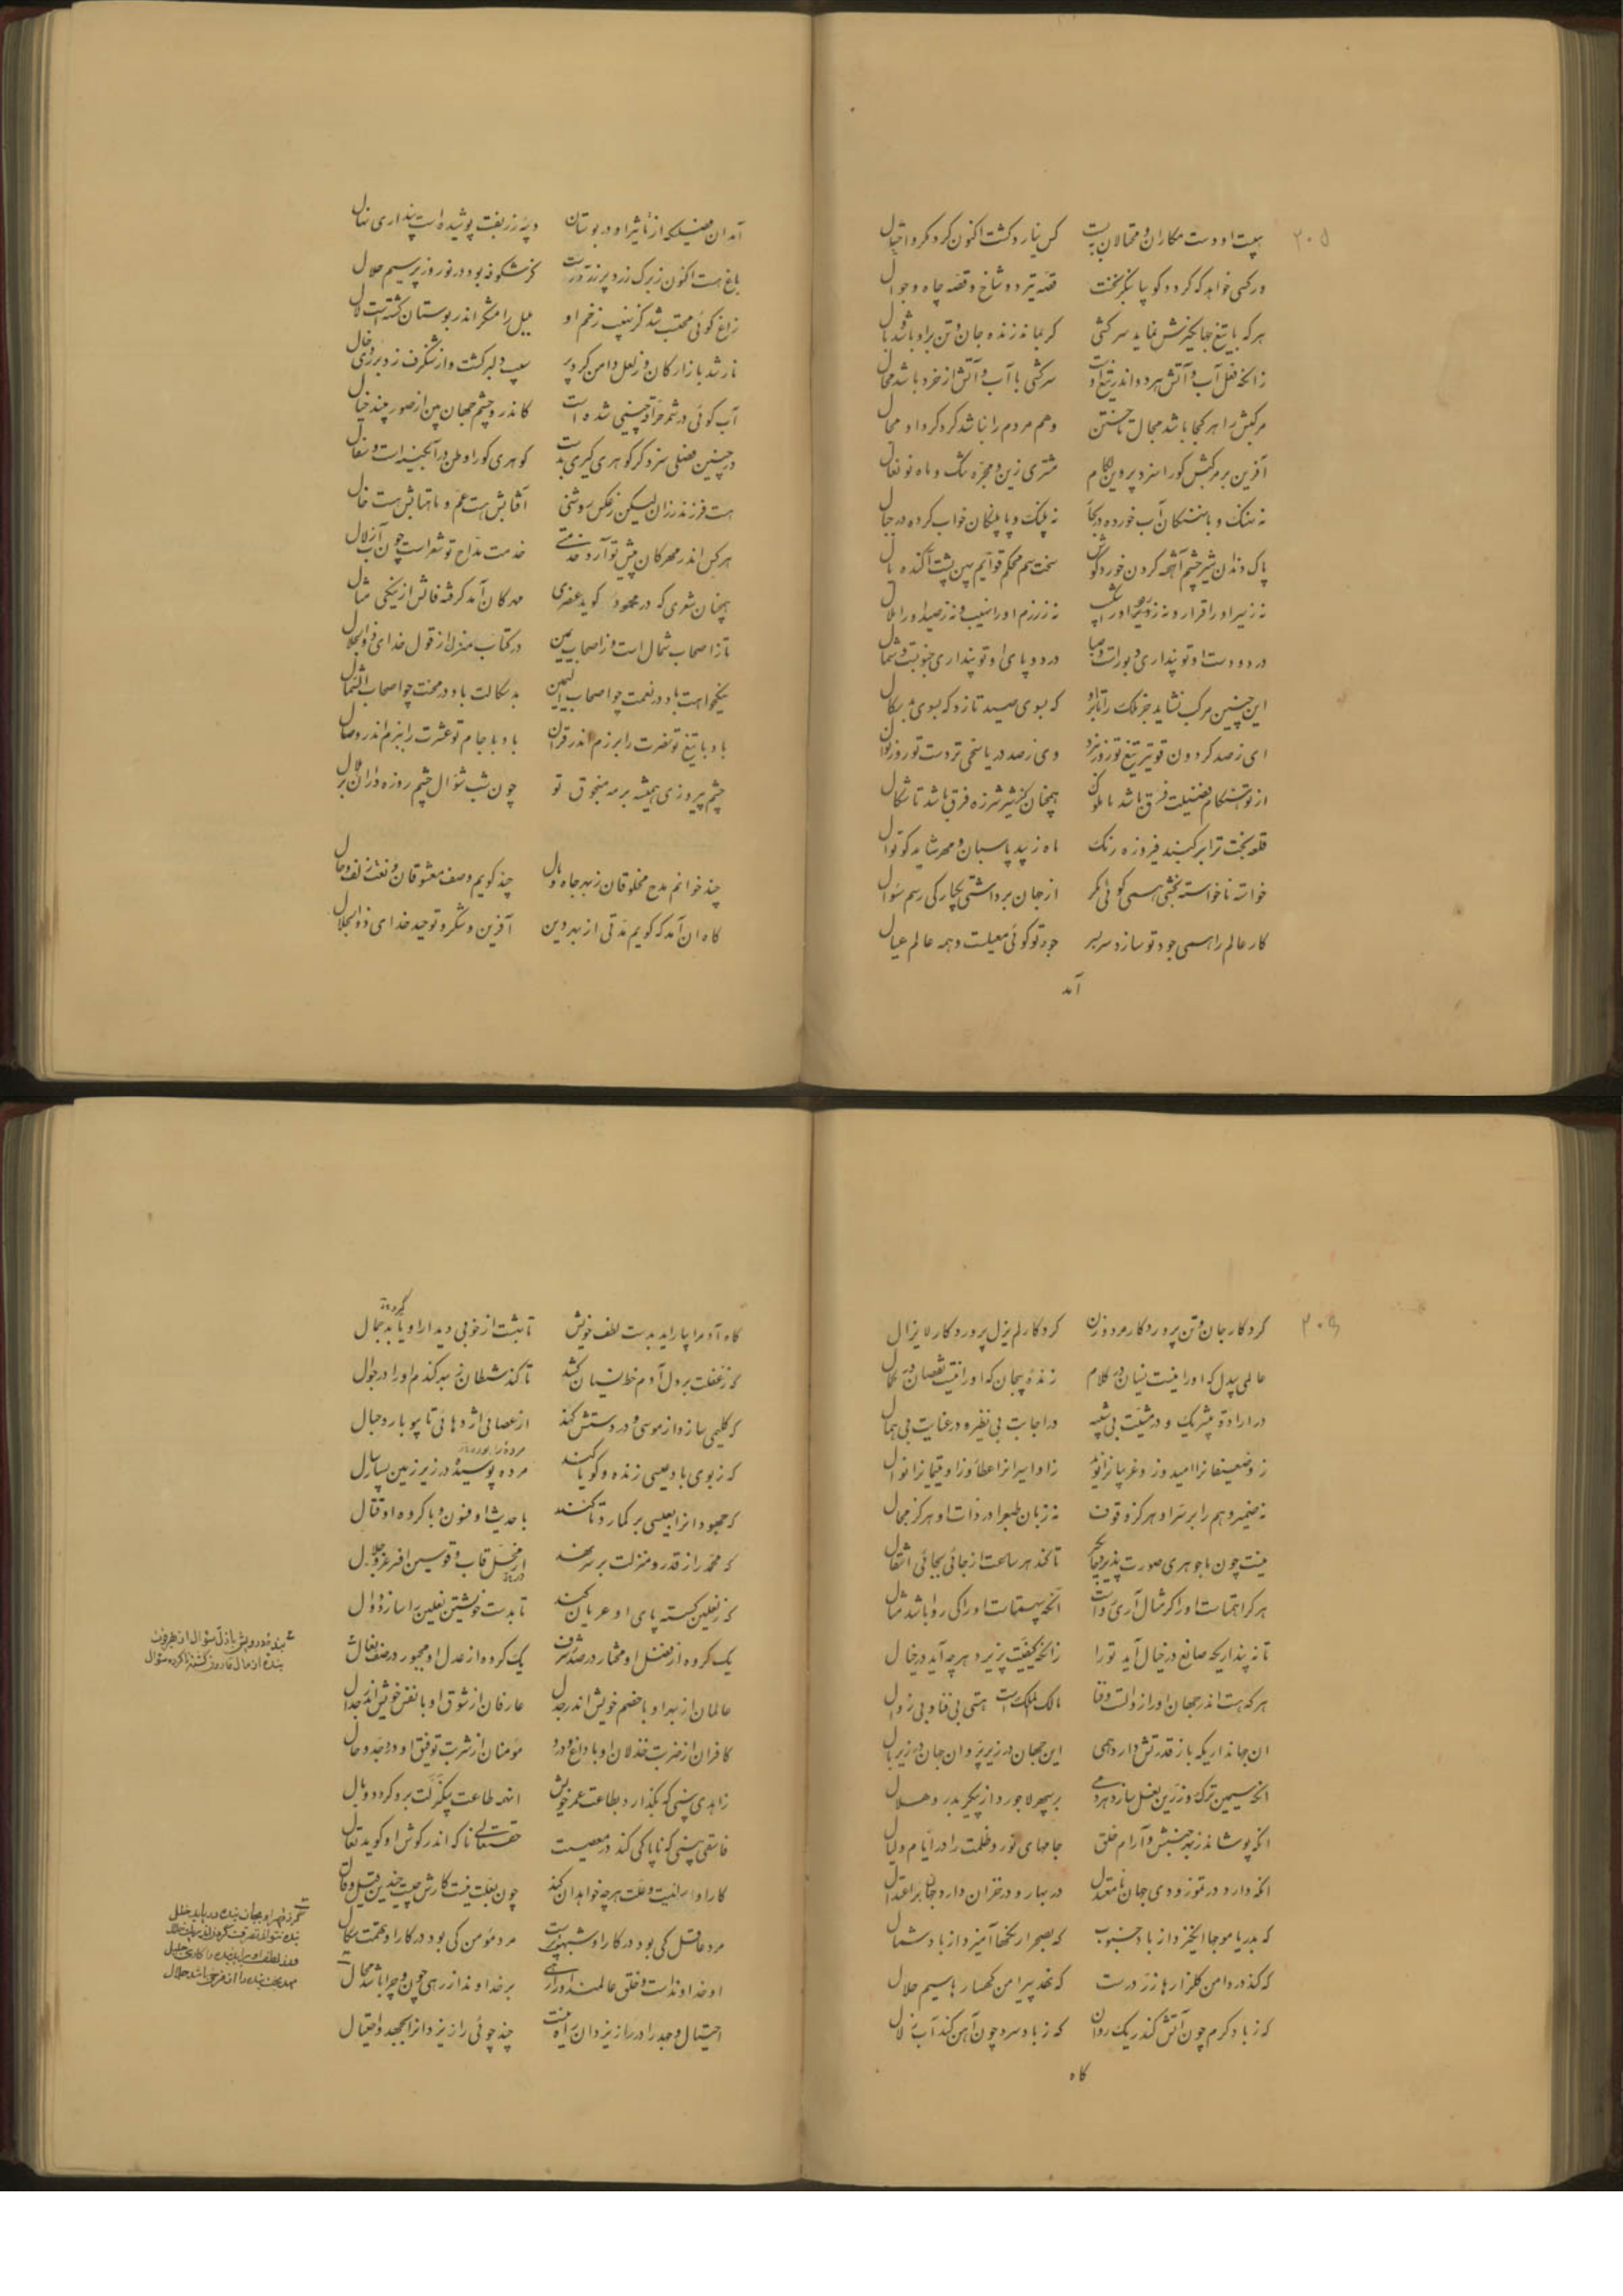 ۲۰۵
هیبت او دست مکاران و محتالان ببست کس نیارد گشت اکنون گرد مکر و احتیال
ور کسی خواهد که گردد کو بیا بنگر نخست قصه تیر دو شاخ و قصه چاه و جوال
هرکه با تیغ جهانگیرش نماید سرکشی گر بماند زنده جان و تن برو باشد وبال
زانکه فعل آب و آتش هر دو اندر تیغ اوست سرکشی با آب و آتش از خرد باشد محال
مرکبش را هر کجا باشد مجال تاختن وهم مردم را نباشد گرد گرد او مجال
آفرین بر مرکبش کورا سزد پروین لگام مشتری زین و مجره تنگ و ماه نو نعال
نه نهنگ و با نهنگان آب خورده در بحار نه پلنگ و با پلنگان خواب کرده در جبال
پاک دندان شیر چشم آخته گردن خورد گوش سخت سم محکم قوایم پهن پشت آکنده یال
نه زرزم او را نهیب و نه زصید او را ملال
در دو دست او تو پنداری دبورست و صبا در دو پای او تو پنداری جنوبست و شمال
این چنین مرکب نشاید جز ملک را تا برو گه بسوی صید تازد گه بسوی بدسگال
ای زصد گردون قویتر تیغ تو روز نبرد وی زصد دریا سخی تر دست تو روز نوال
از تو هنگام فضیلت فرق باشد تا ملوک همچنان کز شیر شرزه فرق باشد تا شکال
قلعه بخت ترا بر گنبد فیروزه رنگ ماه زیبد پاسبان و مهر شاید کوتوال
خواسته ناخواسته بخشی همی گوئی مگر از جهان برداشتی یکبارگی رسم سؤال
کار عالم را همی جود تو سازد سربسر جود تو گوئی معیلست و همه عالم عیال
آمد
آمد ان فصلیکه از تأثیر او در بوستان دیبه زربفت پوشیده است پنداری نهال
باغ هست اکنون ز برگ زرد پر زر درست گر شکوفه بود در نوروز پر سیم حلال
زاغ گوئی محتسب شد کز نهیب زخم او بلبل رامشگر اندر بوستان گشتست لال
نار شد بازارگان وز لعل دامن کرد پر سیب دلبر گشت واز شنگرف زد بر روی خال
آب گوئی در شمر خراقه چینی شده است کاندر و چشم جهان بین از صور بیند خیال
در چنین فصلی سزد گر گوهری گیری بدست گوهری کورا وطن در آبگینه است و سفال
هست فرزند رزان لیکن زعکس روشنی آفتابش هست عم و ماهتابش هست خال
هر کس اندر مهرگان پیش تو آرد خدمتی خدمت مداح تو شعر است چون آب زلال
همچنان شعری که در محمود گوید عنصری مهرگان آمد گرفته فالش از نیکی مثال
تا ز اصحاب شمال است و ز اصحاب یمین در کتاب منزل از قول خدای ذوالجلال
نیکخواهت باد در نعمت چو اصحاب الیمین بدسگالت باد در محنت چو اصحاب الشمال
باد با تیغ تو نصرت را برزم اندر قران باد با جام تو عشرت را ببزم اندر وصال
چشم پیروزی همیشه بر مه منجوق تو چون شب شوال چشم روزه داران بر هلال
چند خوانم مدح مخلوقان ز بهر جاه و مال چند گویم وصف معشوقان و نعت زلف و خال
گاه ان آمد که گویم مدتی از بهر دین آفرین و شکر و توحید خدای ذوالجلال
کردگار جان و تن پروردگار مرد و زن کردگار لم یزل پروردگار لا یزال
عالمی بیدل که او را نیست نسیان در کلام زنده بیجان که او را نیست نقصان در کمال
در ارادت بیشریک و در مشیت بی شبیه در اجابت بی نظیر و در عنایت بی همال
زو ضعیفانرا امید و زو غریبانرا نوید زو اسیرانرا عطا و زو یتیمانرا نوال
نه ضمیر و هم را بر سر او هرگز وقوف نه زبان طبع را در ذات او هرگز مجال
نیست چون ما جوهری صورت پذیر و جایگیر تا کند هر ساعت از جائی بجائی انتقال
تا نه پنداریکه صانع در خیال آید تو را زانکه کیفیت پذیرد هر چه آید در خیال
هر که هست اندر جهان او را زوالست و فنا مالک الملک است هستی بی فنا و بی زوال
ان جهانداریکه باز قدرتش دارد همی این جهان در زیر پر و ان جهان در زیر بال
انکه سیمین ترک و زرین نعل سازد هر مهی بر سپهر لاجورد از پیکر بدر و هلال
انکه پوشاند ز بهر جنبش و آرام خلق جامهای نور و ظلمت را در ایام و لیال
انکه دارد در تموز و دی جهان نامعتدل در بهار و در خزان دارد جهان بر اعتدال
گه بدریا موجها انگیزد از باد جنوب گه بصحرا رنگها آمیزد از باد شمال
گه کند در دامن گلزارها زر درست گه نهد پیرامن کهسارها سیم حلال
گه ز باد گرم چون آتش کند ریک روان گه ز باد سرد چون آهن کند آب زلال
گاه
گاه آدم را بیاراید بدست لطف خویش تا بهشت از خوبی دیدار او یابد جمال
گه ز غفلت بر دل آدم خط نسیان کشد تا کند شیطان ز بهر گندم او را در جوال
گه کلیمی سازد از موسی و در دستش کند از عصائی اژدهائی تا بیوبارد حبال
گه ز بوی باد عیسی زنده و گویا کند مرده پوسیده در زیر زمین بسیار سال
گه محمد را ز قدر و منزلت بر سر نهد
گه ز نعلین گسسته پای او عریان کند تا بدست خویشتن نعلین را سازد دوال
یک گروه از فضل او مختار در صدر شرف یک گروه از عدل او مهجور در صف نعال
عالمان از بهر او با خصم خویش اندر جدل عارفان از شوق او با نفس خویش اندر جدال
کافران از ضربت خذلان او با داغ و درد مؤمنان از شربت توفیق او در وجد و حال
زاهدی بینی که بگذارد بطاعت عمر خویش انهمه طاعت بیک زلت برو گردد وبال
فاسقی بینی که ناپاکی کند در معصیت حقتعالی ناگه اندر گوش او گوید تعال
کار او را نیست علت هر چه خواهد ان کند چون بعلت نیست کارش چیست چندین قیل و قال
مرد عاقل کی بود در کار او شبهت پرست مرد مؤمن کی بود در کار او تهمت سگال
او خداوند است و خلق عالمند او را رهی بر خداوند از رهی چون و چرا باشد محال
احتیال و جهد را در راز یزدان راه نیست چند جوئی راز یزدانرا بجهد و احتیال